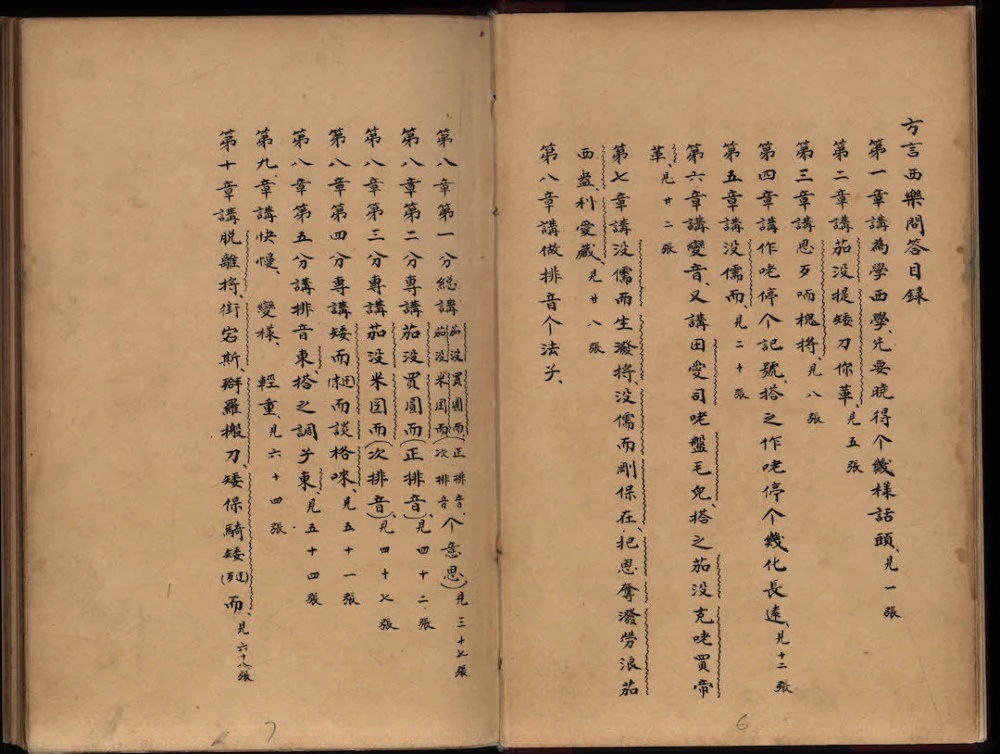 方言西樂問答目錄
第一章講為學西學、先要曉得个幾樣話頭、見一張
第二章講茄没提矮刀你華 見五張
第三章講恩歹唡槐將、見八張
第四章講作咾停个記號、搭之作咾停个幾化長遠、見十二張
第五章講没儒而、見二十張
第六章講變音、又講田愛司咾盤毛兒、搭之茄没克咾買帝
革、見廿二張
第七章講没儒而生潑將、没儒而剛保在、把恩奪潑勞浪茄
西盎、利愛藏 見廿八張
第八章講做排音个法子、
6
第八章第一分總講茄没買圓而(正排音)茄没米囝而(次排音)个意思 見三十七張
第八章第二分專講茄没買圓而(正排音)見四十二張
第八章第三分專講茄没米囝而(次排音)見四十七張
第八章第四分專講矮而而談格咪、見五十一張
第八章第五分講排音東、搭之調子東、見五十四張
第九章講快慢、變樣、輕重、見六十四張
第十章講脱離將、街宕斯、搿羅搬刀、矮保騎矮而、見六十八張
7